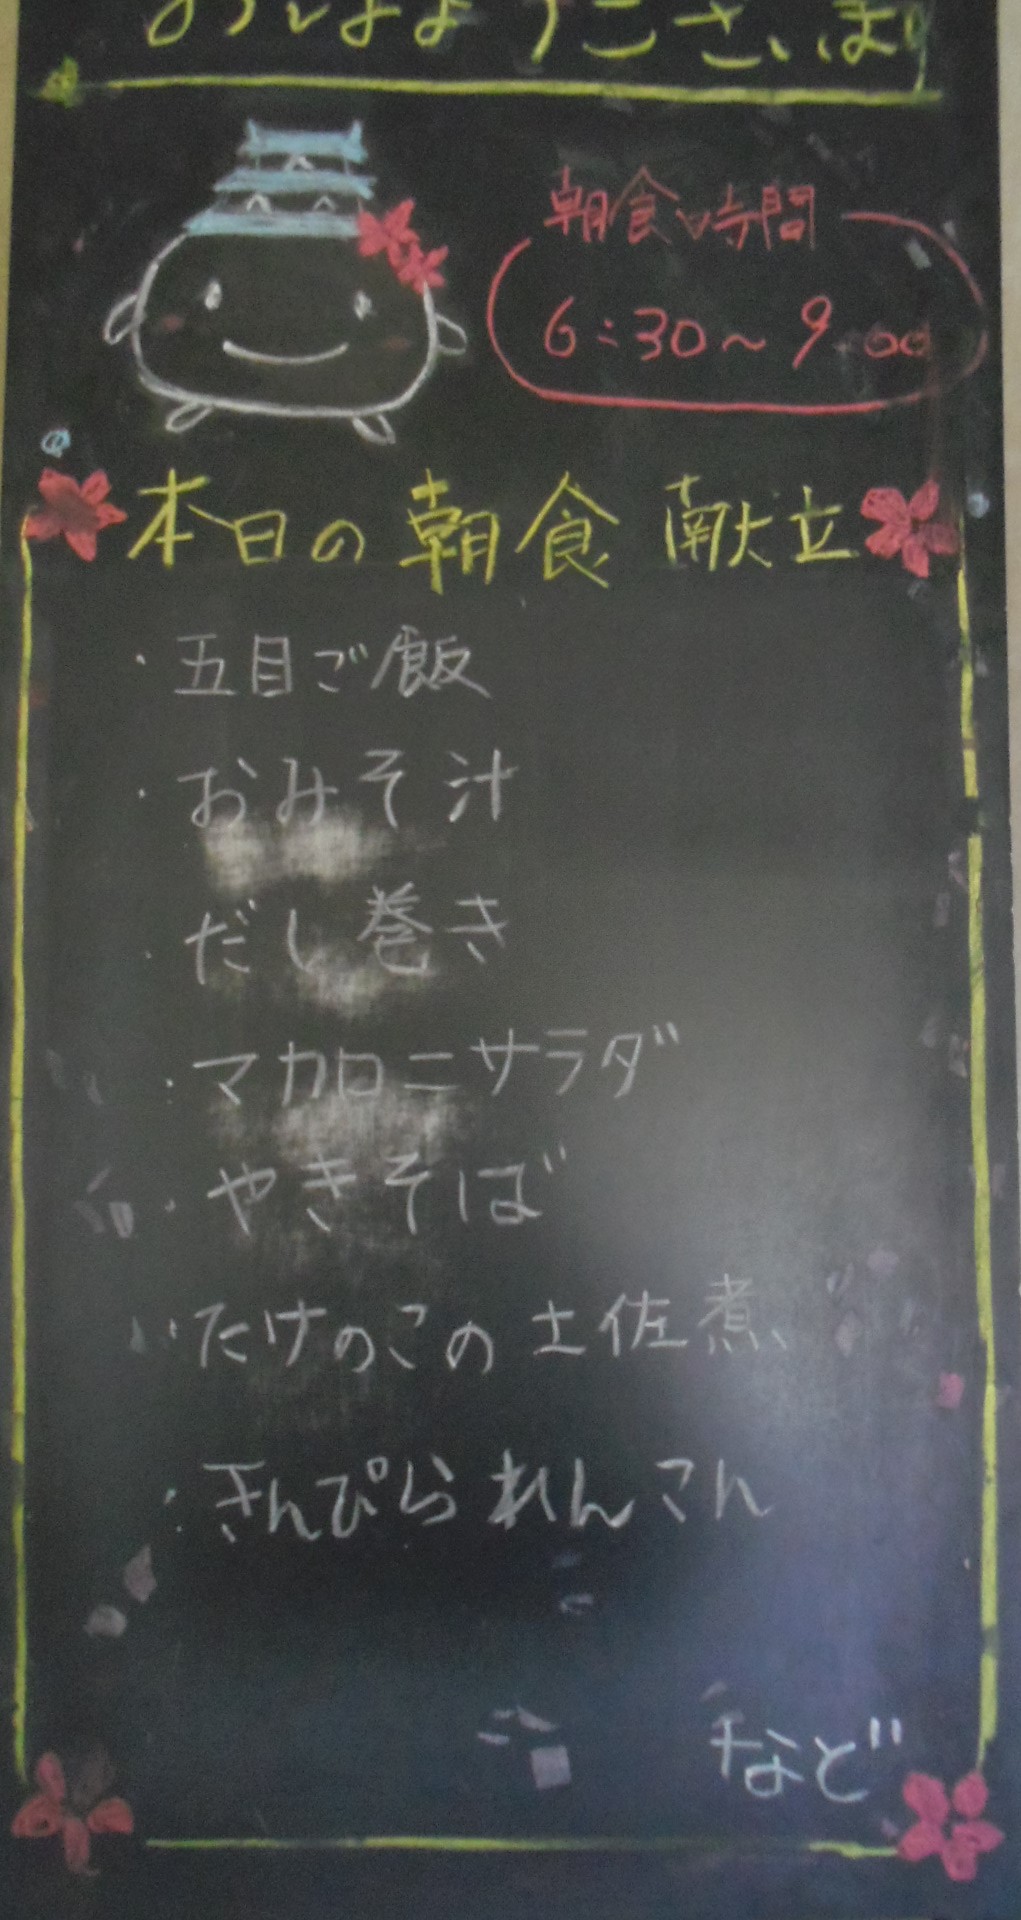 おはようございま
朝食時間
6:30～9:00
本日の朝食献立
・五目ご飯
・おみそ汁
・だし巻き
・マカロニサラダ
・やきそば
・たけのこの土佐煮
・きんぴられんこん
など